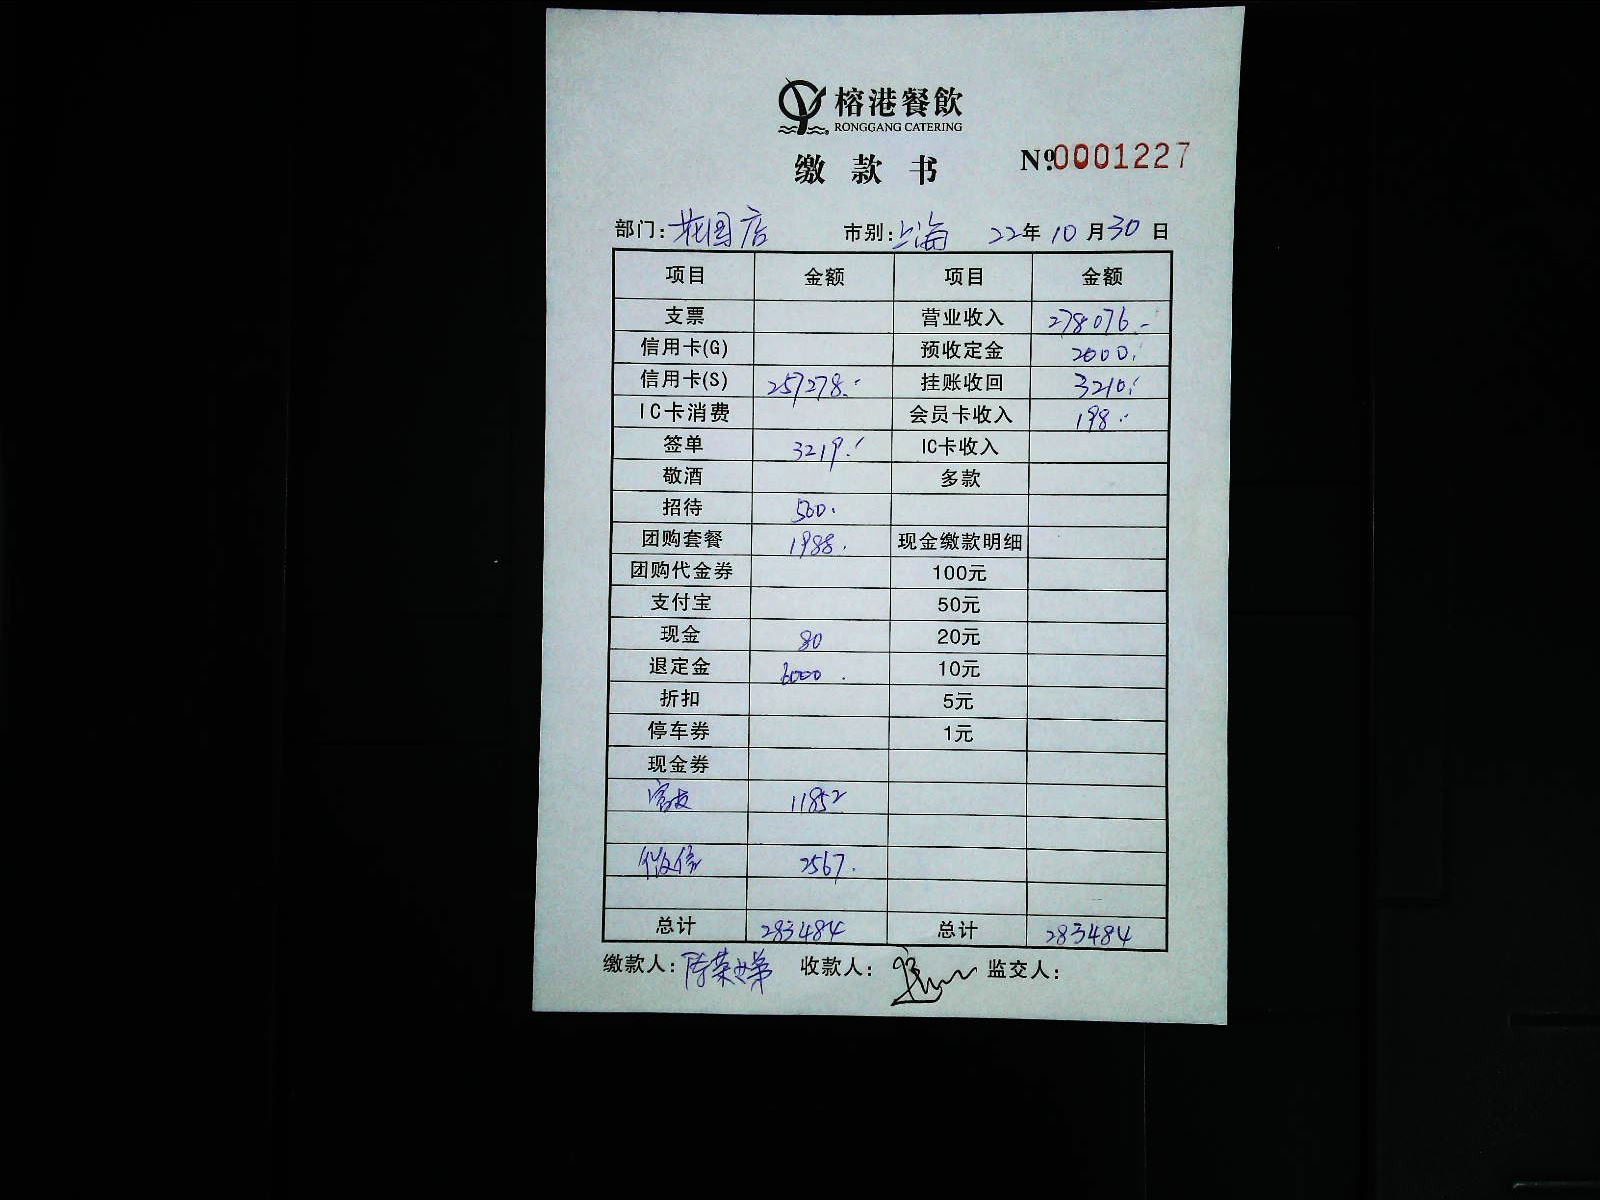 榕港餐飲
RONGGANG CATERING
缴款书 Nº.0001227
部门:花园店 市别:上海 22年10月30日
项目 金额 项目 金额
支票 营业收入 278076.-
信用卡(G) 预收定金 2000.
信用卡(S) 257278.- 挂账收回 3210.
IC卡消费 会员卡收入 198.-
签单 3219. IC卡收入
敬酒 多款
招待 500.
团购套餐 1988. 现金缴款明细
团购代金券 100元
支付宝 50元
现金 80 20元
退定金 6000. 10元
折扣 5元
停车券 1元
现金券
11852
微信 2567.
总计 283484 总计 283484
缴款人: 收款人: 监交人: